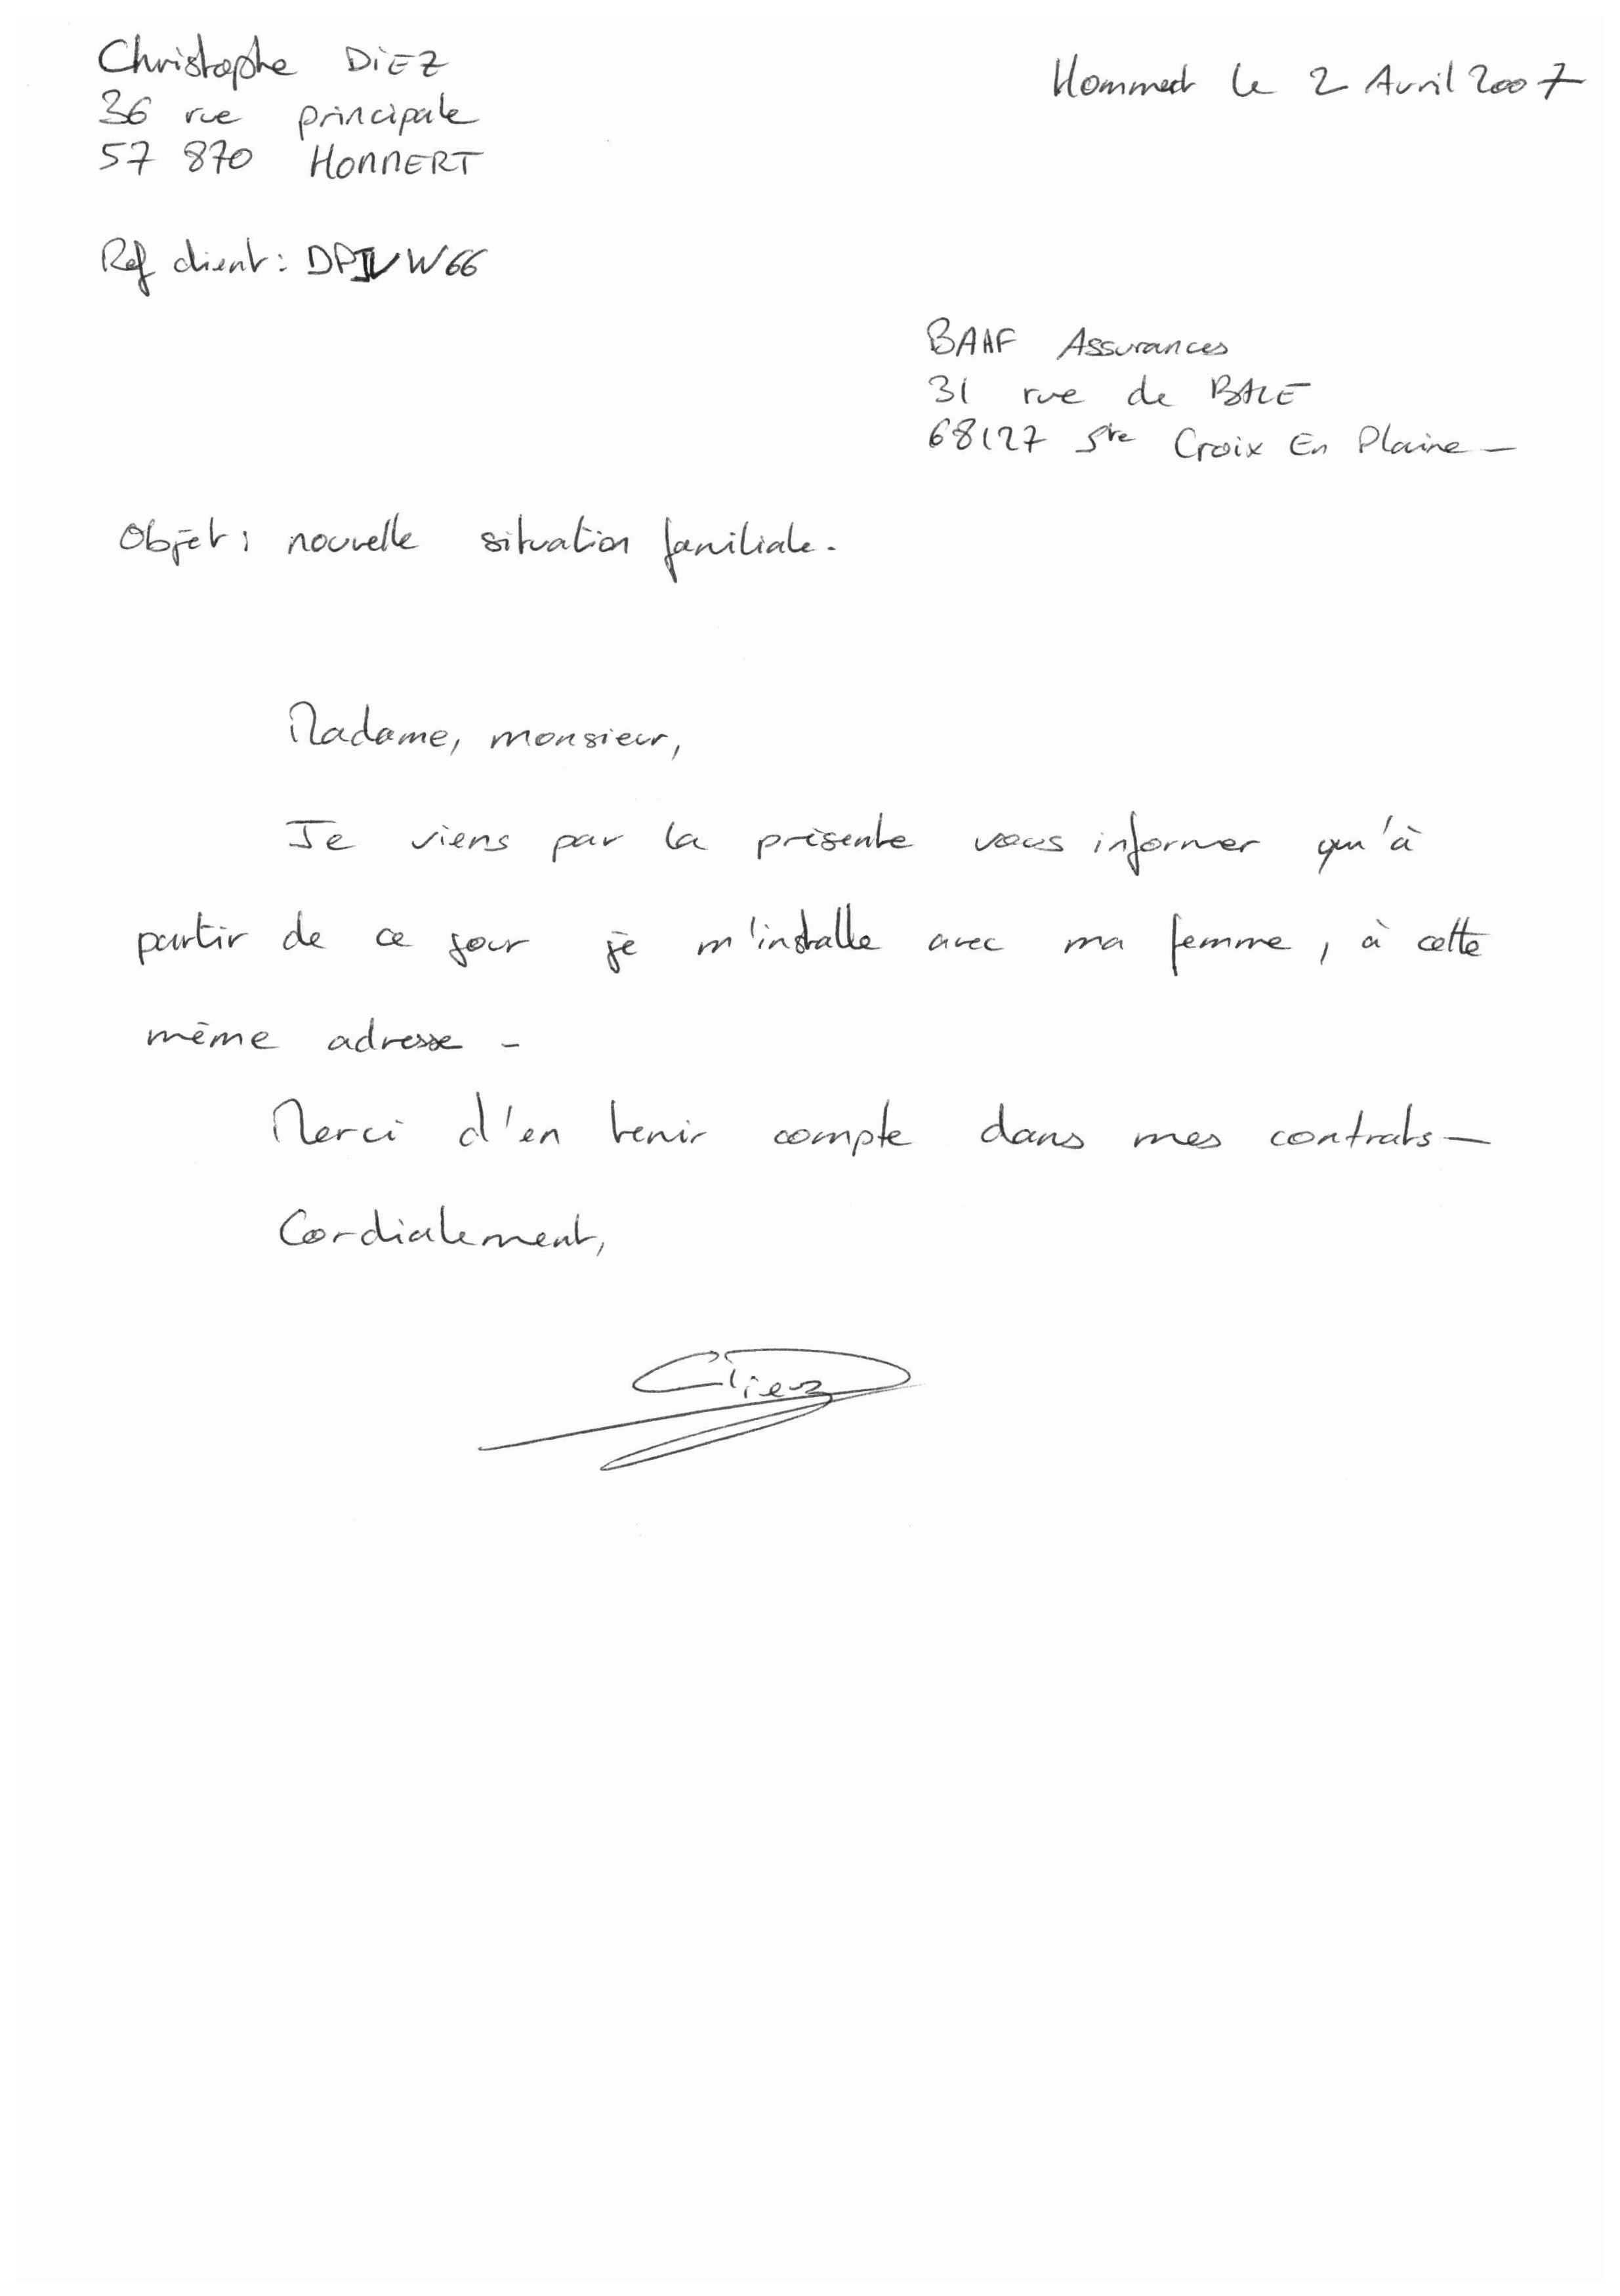 Christophe DiEZ
Hommert le 2 Avril 2007
36 rue principale
57 870 HOMMERT
Ref client : W66
BAAF Assurances
31 rue de BALE
68127 Ste Croix En Plaine -
Objet : nouvelle situation familiale.
Madame, monsieur,
Je viens par la présente vous informer qu'à
partir de ce jour je m'installe avec ma femme, à cette
même adresse -
Merci d'en tenir compte dans mes contrats -
Cordialement,